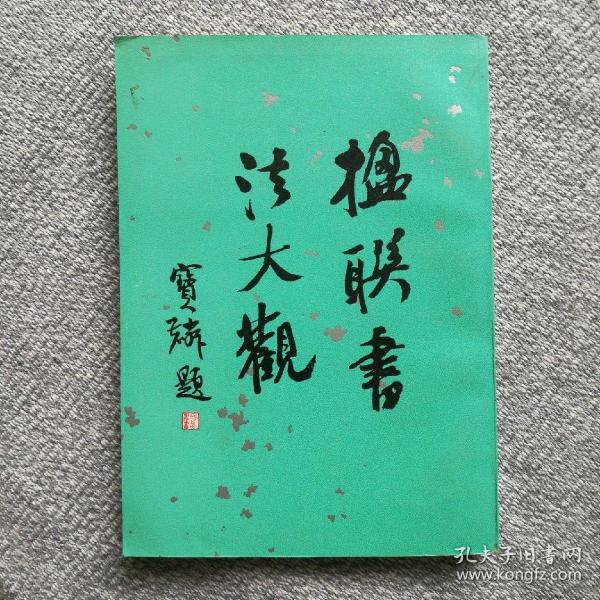 楹联書
法大觀
寶麟題
孔夫子旧书网
www.kongfz.com